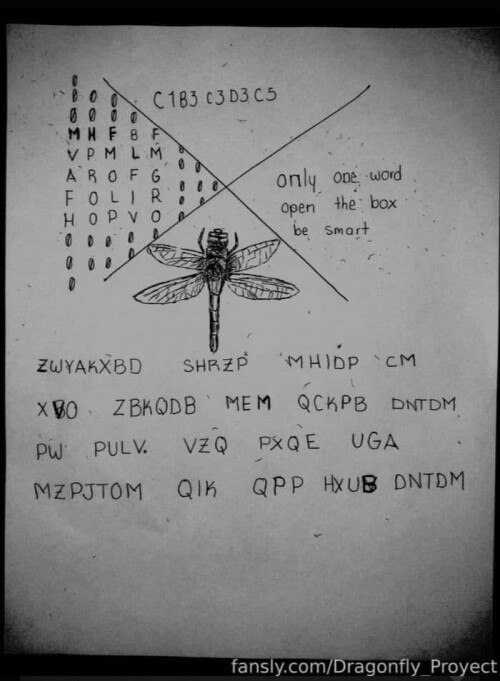 0
0 0 0
0 0 0 0
C1B3 C3D3C5
M H F B F
V P M L M 0
A R O F G 0 0
F O L I R 0 0 0
H O P V O 0
0 0 0 0
0 0 0 0
0
only one word
open the box
be smart
ZWYAKXBD SHRZP MHIDP CM
XBO ZBKQDB MEM QCKPB DNTDM
PW PULV. VZQ PXQE UGA
MZPJTOM QIK QPP HXUB DNTDM
fansly.com/Dragonfly_Proyect